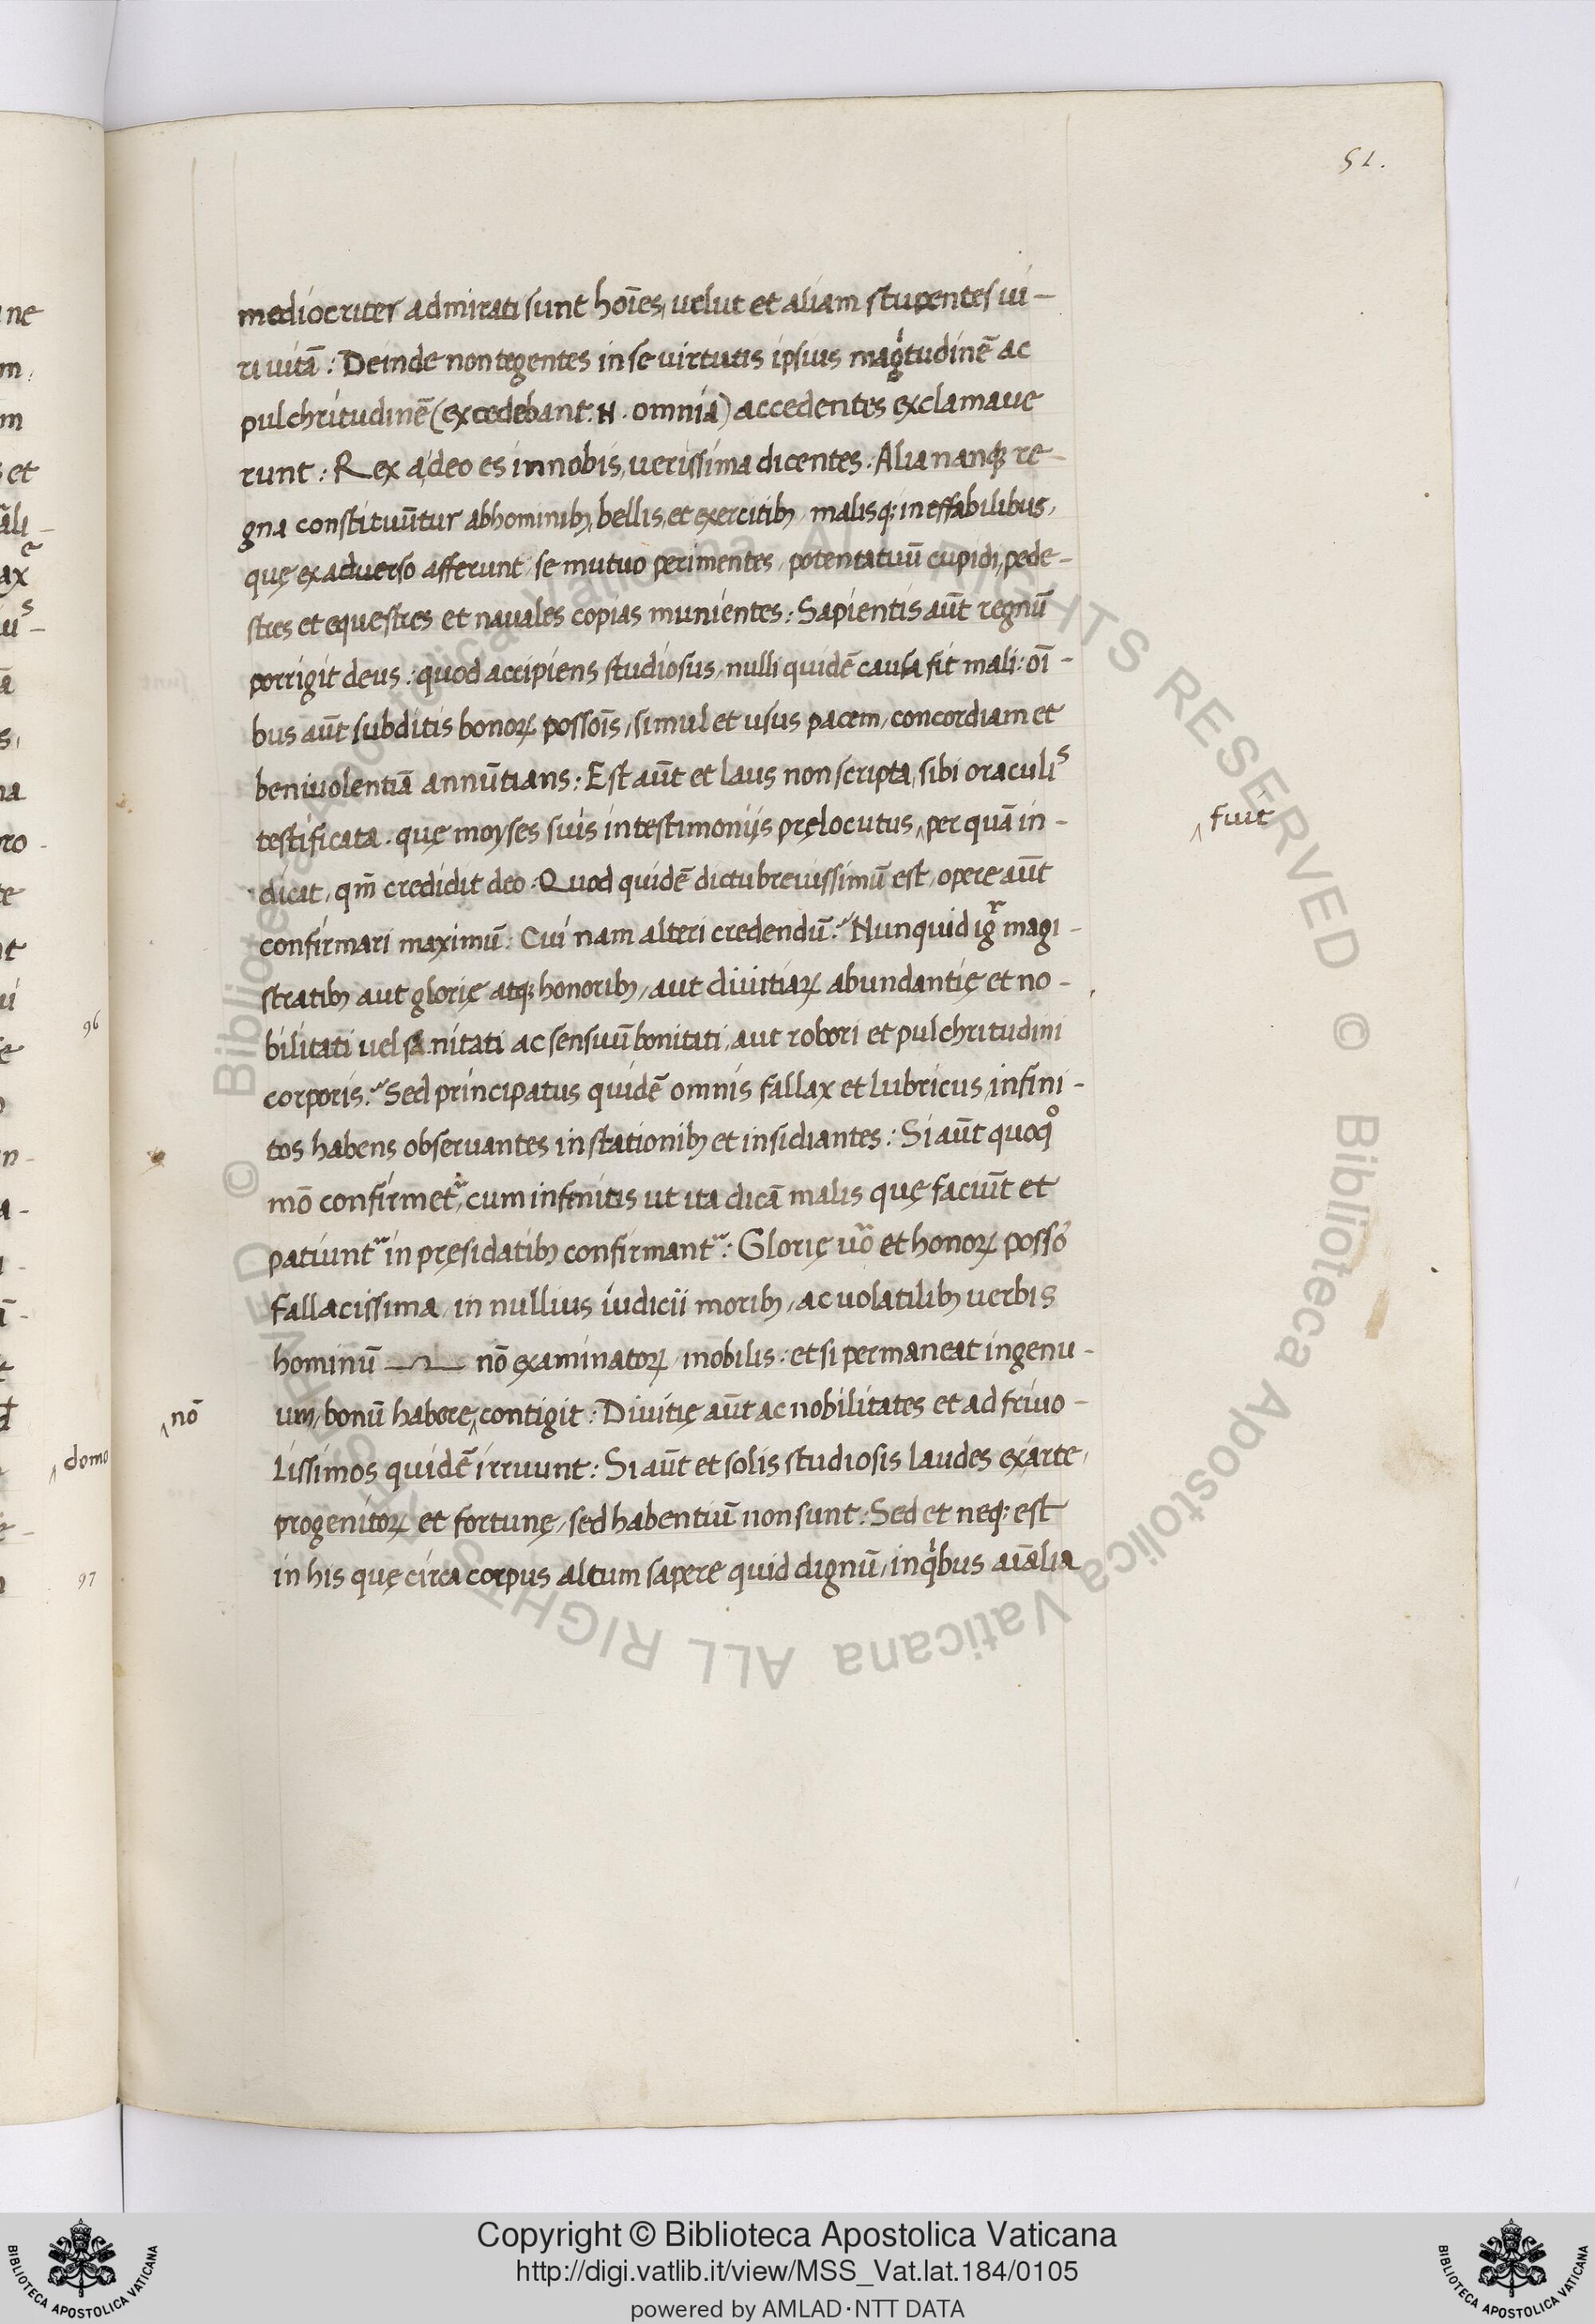 51.
mediocriter admirati sunt hoīes, velut et aliam stupentes vi-
ri vitā: Deinde non tegentes in se virtutis ipsius magͥtudinē ac
pulchritudinē (excedebant. N. omnia) accedentes exclamave
runt: Rex a deo es in nobis, verissima dicentes: Alia nanqꝫ re-
gna constituūtur ab hominibꝫ, bellis, et exercitibꝫ, malisqꝫ ineffabilibus,
quę ex adverso afferunt, se mutuo perimentes, potentatuū cupidi, pede-
stres et equestres et navales copias munientes: Sapientis aūt regnū
porrigit deus: quod accipiens studiosus, nulli quidē causa fit mali: oī-
bus aūt subditis bonoꝝ possoīs, simul et usus pacem, concordiam et
benivolentiā annūtians: Est aūt et laus non scripta, sibi oraculis
testificata. quę moyses suis in testimoniis pręlocutus ‸ per quā in-
‸ fuit
dicat, qm̄ credidit deo: Quod quidē dictu brevissimū est, opere aūt
confirmari maximū: Cui nam alteri credendū? Nunquid igͬ magi-
stratibꝫ aut glorię atqꝫ honoribꝫ, aut divitiaꝝ abundantię et no-
bilitati vel sanitati ac sensuū bonitati, aut robori et pulchritudini
corporis? Sed principatus quidē omnis fallax et lubricus, infini-
tos habens observantes in stationibꝫ et insidiantes: Si aūt quoqͦ
mō confirmetᷣ, cum infinitis ut ita dicā malis quę faciūt et
patiuntᷣ in pręsidatibꝫ confirmantᷣ: Glorię vͦo et honoꝝ posso
fallacissima in nullius iudicii moribꝫ, ac volatilibꝫ verbis
hominū nō examinatoꝝ, mobilis: et si permaneat ingenu-
um, bonū habere ‸ contigit: Divitię aūt ac nobilitates et ad frivo-
‸ nō
lissimos quidē irruunt: Si aūt et solis studiosis laudes ex arte,
progenitoꝝ et fortunę, sed habentiū non sunt: Sed et neqꝫ est
in his quę circa corpus altum sapere quid dignū, in qͥbus aīalia
96
‸ domo
97
Copyright © Biblioteca Apostolica Vaticana
http://digi.vatlib.it/view/MSS_Vat.lat.184/0105
powered by AMLAD·NTT DATA